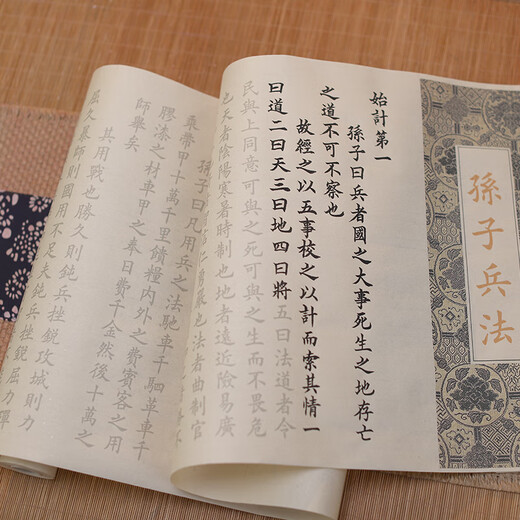 孫子兵法
始計第一
孫子曰兵者國之大事死生之地存亡
之道不可不察也
故經之以五事校之以計而索其情一
曰道二曰天三曰地四曰將五曰法道者令
民與上同意可與之死可與之生而不畏危
也天者陰陽寒暑時制也地者遠近險易廣
仁勇嚴也法者曲制官
孫子曰凡用兵之法馳車千駟革車千
乘帶甲十萬千里饋糧內外之費賓客之用
膠漆之材車甲之奉日費千金然後十萬之
師舉矣
其用戰也勝久則鈍兵挫銳攻城則力
屈久暴師則國用不足夫鈍兵挫銳屈力殫